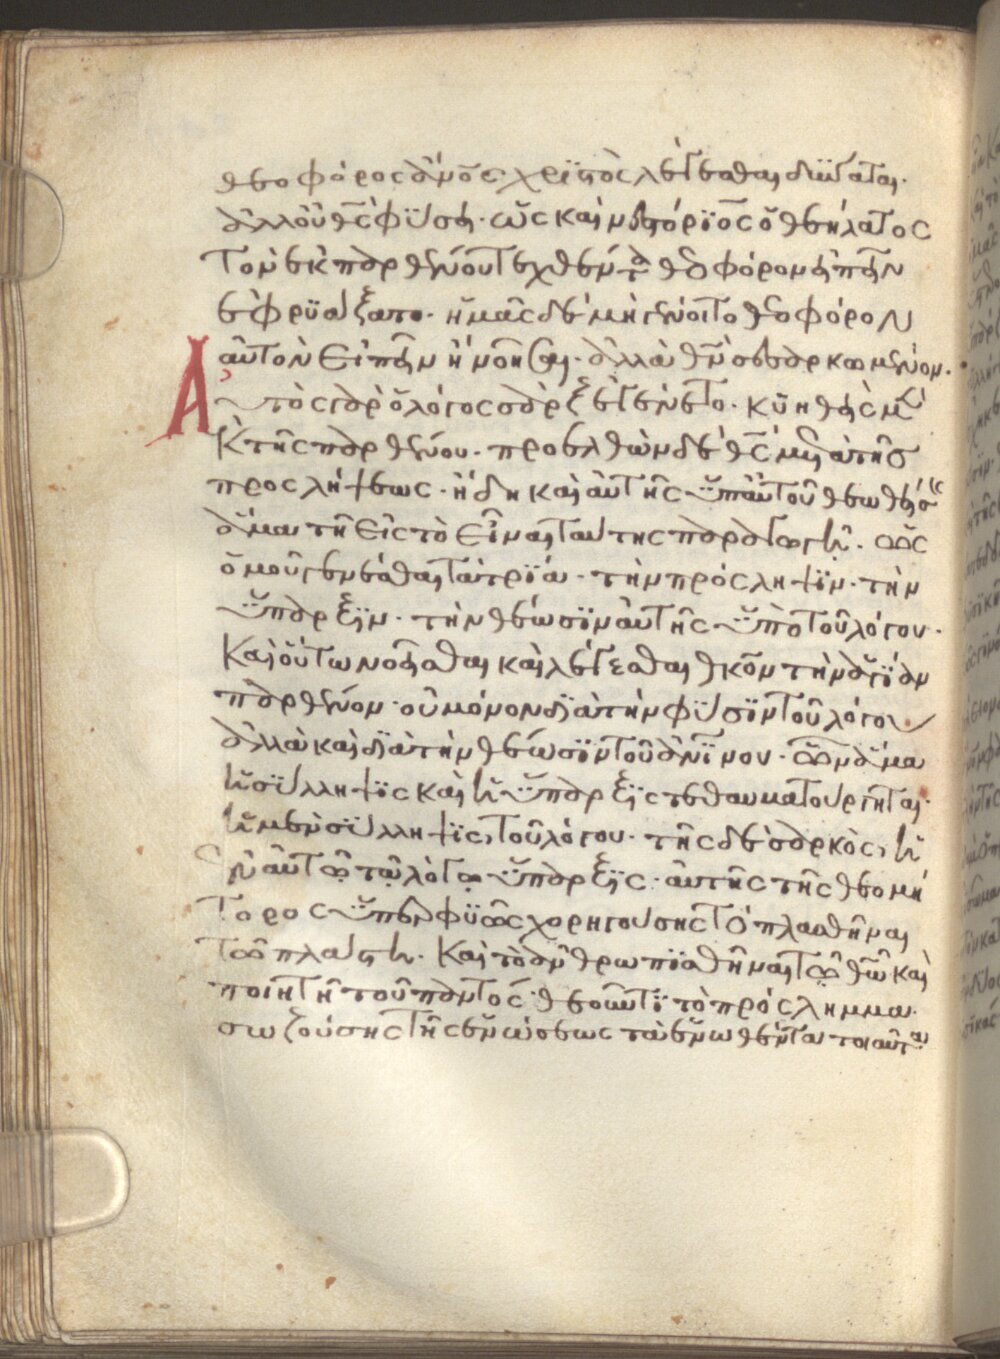 θεοφόρος ἄνος ὁ χριϊστὸς λέγεσθαι δύναται·
ἀλλ' οὐ θς φύσει· ὡς καὶ νεστόριος ὁ θεήλατος
τὸν ἐκ παρθένου τεχθέντα θεοφόρον εἰπεῖν
ἐφρυάξατο· ἡμᾶς δὲ μὴ γένοιτο θεοφόρον
αὐτὸν εἰπεῖν ἢ νοῆσαι· ἀλλὰ θν σεσαρκωμένον·
Αὐτὸς γὰρ ὁ λόγος σὰρξ ἐγένετο· κυηθεὶς μὲν
ἐκ τῆς παρθένου· προελθὼν δὲ θς μετὰ τῆς
προσλήψεως· ἤδη καὶ αὐτῆς ὑπ' αὐτοῦ θεωθείσης
ἅμα τῆ εἰς τὸ εἶναι ταύτης παραγωγῆ· ὡς
ὁμοῦ γενέσθαι τὰ τρία· τὴν πρόσληψιν· τὴν
ὕπαρξιν· τὴν θέωσιν αὐτῆς ὑπὸ τοῦ λόγου·
Καὶ οὕτω νοεῖσθαι καὶ λέγεσθαι θκον τὴν ἁγίαν
παρθένον· οὐ μόνον διὰ τὴν φύσιν τοῦ λόγου
ἀλλὰ καὶ διὰ τὴν θέωσιν τοῦ ἀνίνου· ὧν ἅμα
ἡ σύλληψις καὶ ἡ ὕπαρξις τεθαυματούργηται·
ἡ μὲν σύλληψις, τοῦ λόγου· τῆς δὲ σαρκὸς, ἡ
ἐν αὐτῷ τῷ λόγῳ ὕπαρξις· αὐτῆς τῆς θεομή
τορος ὑπερφυῶς χορηγούσης τὸ πλασθῆναι
τῷ πλάστῃ· Καὶ τὸ ἀνθρωπισθῆναι τῷ θῶ καὶ
ποιητῆ τοῦ παντὸς· θεοῦντι τὸ πρόσλημμα·
σωζούσης τῆς ἑνώσεως τὰ ἑνωθέντα τοιαῦτα